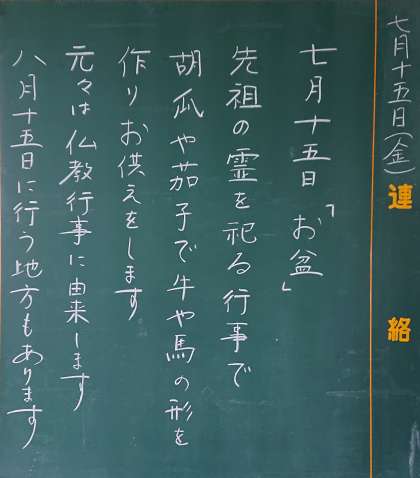 七月十五日(金)
連絡
七月十五日「お盆」
先祖の霊を祀る行事で
胡瓜や茄子で牛や馬の形を
作りお供えをします
元々は仏教行事に由来します
八月十五日に行う地方もあります